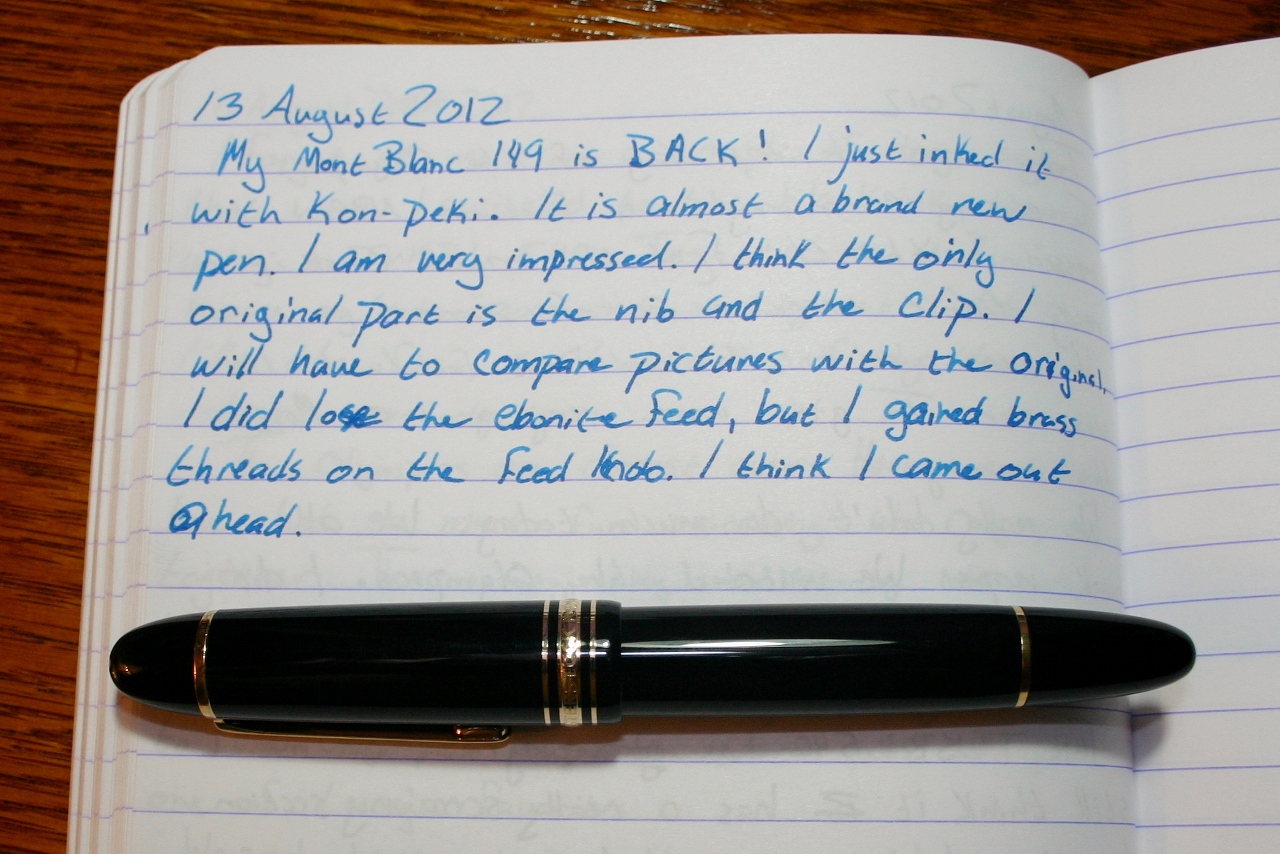 13 August 2012
My Mont Blanc 149 is BACK! I just inked it
with Kon-peki. It is almost a brand new
pen. I am very impressed. I think the only
original part is the nib and the clip. I
will have to compare pictures with the original.
I did lose the ebonite feed, but I gained brass
threads on the feed knob. I think I came out
ahead.